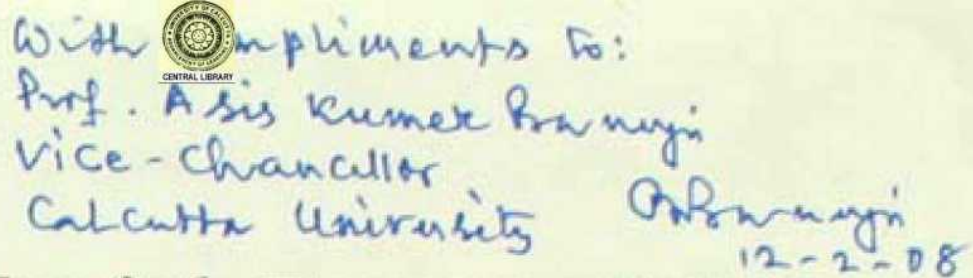 With compliments to:
CENTRAL LIBRARY
Prof. Asis Kumer Banerji
Vice-Chancellor
Calcutta University
12-2-08